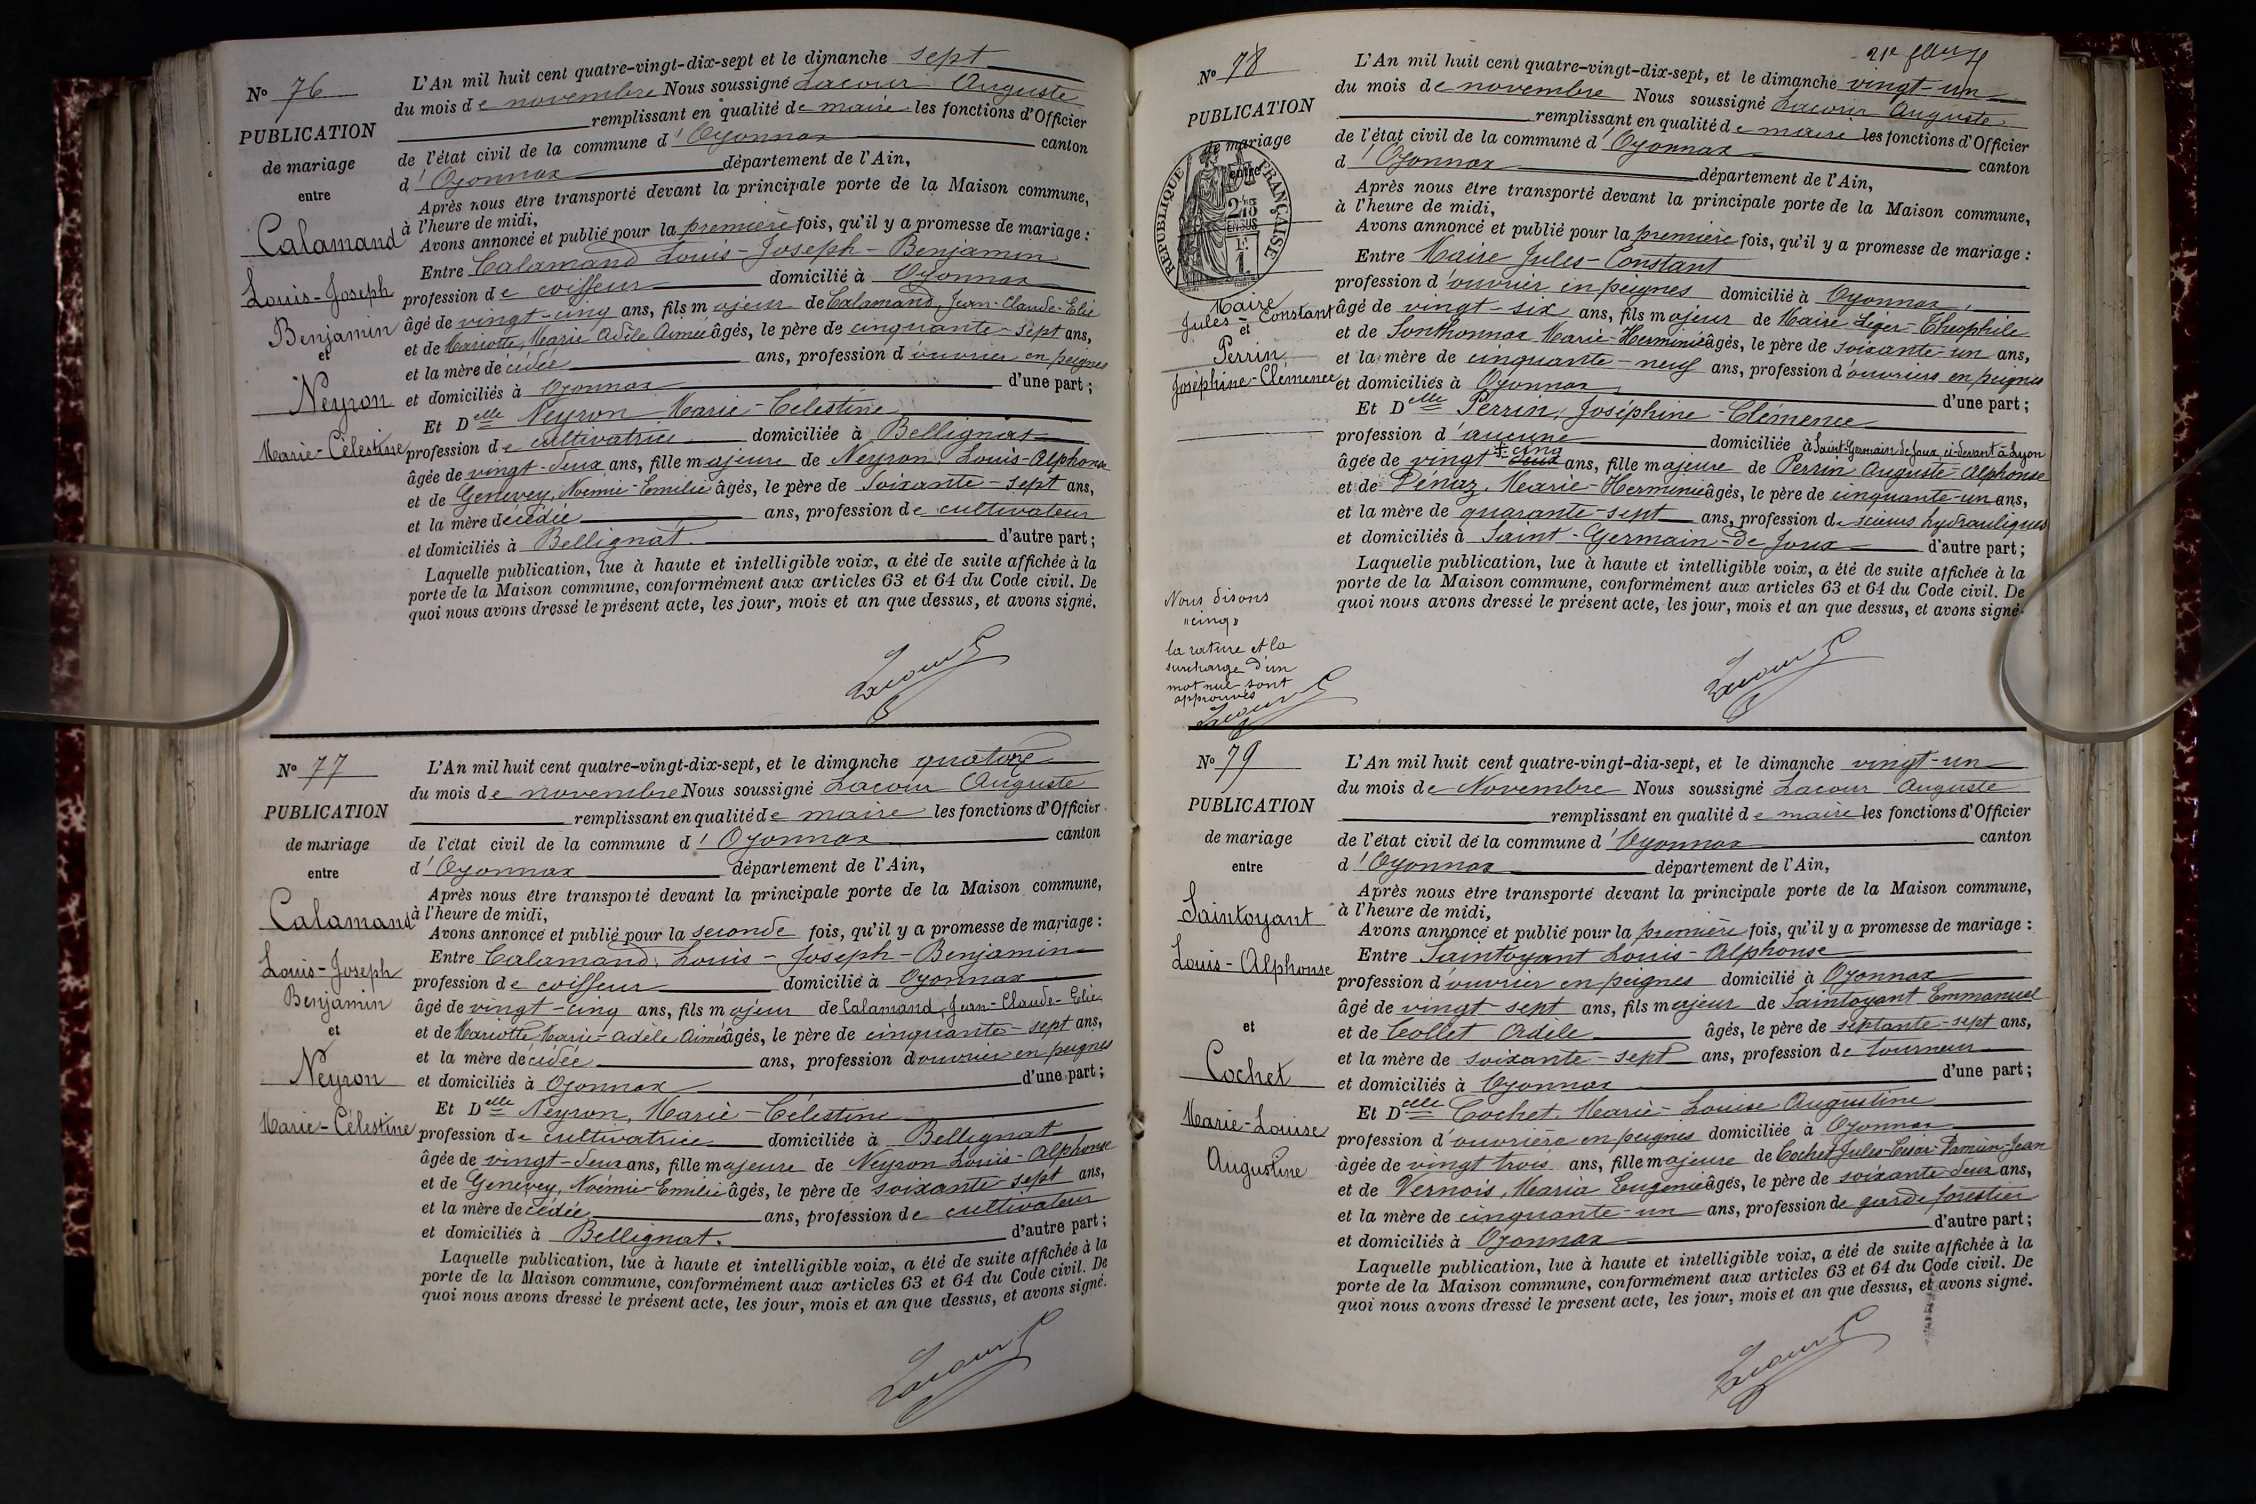 N° 76
PUBLICATION
de mariage
entre
Calamand
Louis-Joseph
Benjamin
et
Neyron
Marie-Célestine
L'An mil huit cent quatre-vingt-dix-sept et le dimanche sept
du mois de novembre Nous soussigné Lacour Auguste
remplissant en qualité de maire les fonctions d'Officier
de l'état civil de la commune d'Oyonnax canton
d'Oyonnax département de l'Ain,
Après nous être transporté devant la principale porte de la Maison commune,
à l'heure de midi,
Avons annoncé et publié pour la première fois, qu'il y a promesse de mariage :
Entre Calamand Louis-Joseph-Benjamin
profession de coiffeur domicilié à Oyonnax
âgé de vingt-cinq ans, fils majeur de Calamand, Jean-Claude-Elie
et de Mariotte, Marie Adèle Aimée âgés, le père de cinquante-sept ans,
et la mère décédée ans, profession d'ouvrier en peignes
et domiciliés à Oyonnax d'une part ;
Et Delle Neyron Marie-Célestine
profession de cultivatrice domiciliée à Bellignat
âgée de vingt-deux ans, fille majeure de Neyron, Louis-Alphonse
et de Genevey, Noémie-Emilie âgés, le père de soixante-sept ans,
et la mère décédée ans, profession de cultivateur
et domiciliés à Bellignat. d'autre part ;
Laquelle publication, lue à haute et intelligible voix, a été de suite affichée à la
porte de la Maison commune, conformément aux articles 63 et 64 du Code civil. De
quoi nous avons dressé le présent acte, les jour, mois et an que dessus, et avons signé.
Lacour
N° 77
PUBLICATION
de mariage
entre
Calamand
Louis-Joseph
Benjamin
et
Neyron
Marie-Célestine
L'An mil huit cent quatre-vingt-dix-sept, et le dimanche quatorze
du mois de novembre Nous soussigné Lacour Auguste
remplissant en qualité de maire les fonctions d'Officier
de l'état civil de la commune d'Oyonnax canton
d'Oyonnax département de l'Ain,
Après nous être transporté devant la principale porte de la Maison commune,
à l'heure de midi,
Avons annoncé et publié pour la seconde fois, qu'il y a promesse de mariage :
Entre Calamand, Louis-Joseph-Benjamin
profession de coiffeur domicilié à Oyonnax
âgé de vingt-cinq ans, fils majeur de Calamand, Jean-Claude-Elie
et de Mariotte, Marie-Adèle Aimée âgés, le père de cinquante-sept ans,
et la mère décédée ans, profession d'ouvrier en peignes
et domiciliés à Oyonnax d'une part ;
Et Delle Neyron, Marie-Célestine
profession de cultivatrice domiciliée à Bellignat
âgée de vingt-deux ans, fille majeure de Neyron Louis-Alphonse
et de Genevey, Noémie-Emilie âgés, le père de soixante-sept ans,
et la mère décédée ans, profession de cultivateur
et domiciliés à Bellignat. d'autre part ;
Laquelle publication, lue à haute et intelligible voix, a été de suite affichée à la
porte de la Maison commune, conformément aux articles 63 et 64 du Code civil. De
quoi nous avons dressé le présent acte, les jour, mois et an que dessus, et avons signé.
Lacour
N° 78
PUBLICATION
de mariage
entre
REPUBLIQUE FRANÇAISE
Maire
Jules-Constant
et
Perrin
Joséphine-Clémence
Nous disons
"cinq"
la rature et la
surcharge d'un
mot nul sont
approuvés
Lacour
L'An mil huit cent quatre-vingt-dix-sept, et le dimanche vingt-un
du mois de novembre Nous soussigné Lacour Auguste
remplissant en qualité de maire les fonctions d'Officier
de l'état civil de la commune d'Oyonnax canton
d'Oyonnax département de l'Ain,
Après nous être transporté devant la principale porte de la Maison commune,
à l'heure de midi,
Avons annoncé et publié pour la première fois, qu'il y a promesse de mariage :
Entre Maire Jules-Constant
profession d'ouvrier en peignes domicilié à Oyonnax,
âgé de vingt-six ans, fils majeur de Maire Léger-Théophile
et de Sonthonnax Marie-Herminie âgés, le père de soixante-un ans,
et la mère de cinquante-neuf ans, profession d'ouvriers en peignes
et domiciliés à Oyonnax d'une part ;
Et Delle Perrin, Joséphine-Clémence
profession d'aucune domiciliée à Saint-Germain de Joux, ci-devant à Lyon
âgée de vingt cinq deux ans, fille majeure de Perrin Auguste-Alphonse
et de Pénaz, Marie-Herminie âgés, le père de cinquante-un ans,
et la mère de quarante-sept ans, profession de scieurs hydrauliques
et domiciliés à Saint-Germain-de Joux d'autre part ;
Laquelle publication, lue à haute et intelligible voix, a été de suite affichée à la
porte de la Maison commune, conformément aux articles 63 et 64 du Code civil. De
quoi nous avons dressé le présent acte, les jour, mois et an que dessus, et avons signé.
Lacour
N° 79
PUBLICATION
de mariage
entre
Saintoyant
Louis-Alphonse
et
Cochet
Marie-Louise
Augustine
L'An mil huit cent quatre-vingt-dia-sept, et le dimanche vingt-un
du mois de Novembre Nous soussigné Lacour Auguste
remplissant en qualité de maire les fonctions d'Officier
de l'état civil de la commune d'Oyonnax canton
d'Oyonnax département de l'Ain,
Après nous être transporté devant la principale porte de la Maison commune,
à l'heure de midi,
Avons annoncé et publié pour la première fois, qu'il y a promesse de mariage :
Entre Saintoyant Louis-Alphonse
profession d'ouvrier en peignes domicilié à Oyonnax
âgé de vingt sept ans, fils majeur de Saintoyant Emmanuel
et de Collet Adèle âgés, le père de septante-sept ans,
et la mère de soixante-sept ans, profession de tourneur
et domiciliés à Oyonnax d'une part ;
Et Delle Cochet, Marie-Louise Augustine
profession d'ouvrière en peignes domiciliée à Oyonnax
âgée de vingt trois ans, fille majeure de Cochet Jules-César-Damien-Jean
et de Vernois, Maria Eugénie âgés, le père de soixante-deux ans,
et la mère de cinquante-un ans, profession de garde forestier
et domiciliés à Oyonnax d'autre part ;
Laquelle publication, lue à haute et intelligible voix, a été de suite affichée à la
porte de la Maison commune, conformément aux articles 63 et 64 du Code civil. De
quoi nous avons dressé le present acte, les jour, mois et an que dessus, et avons signé.
Lacour